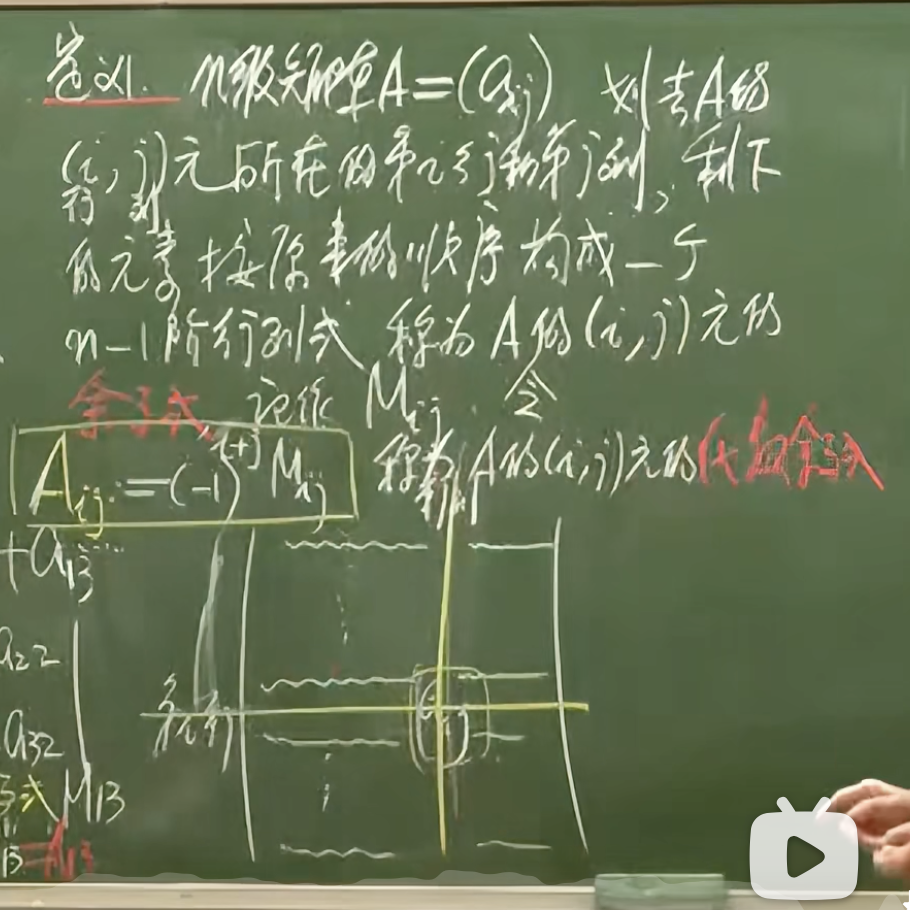 定义1. n级矩阵A=(aij) 划去A的
(i,j)元所在的第i行和第j列, 剩下
行 列
的元素按原来的顺序构成一个
n-1阶行列式 称为A的(i,j)元的
余子式, 记作 Mij. 令
Aij=(-1)^{i+j} Mij 称为A的(i,j)元的代数余子式
+a13
a22
第i行
a32
子式M13